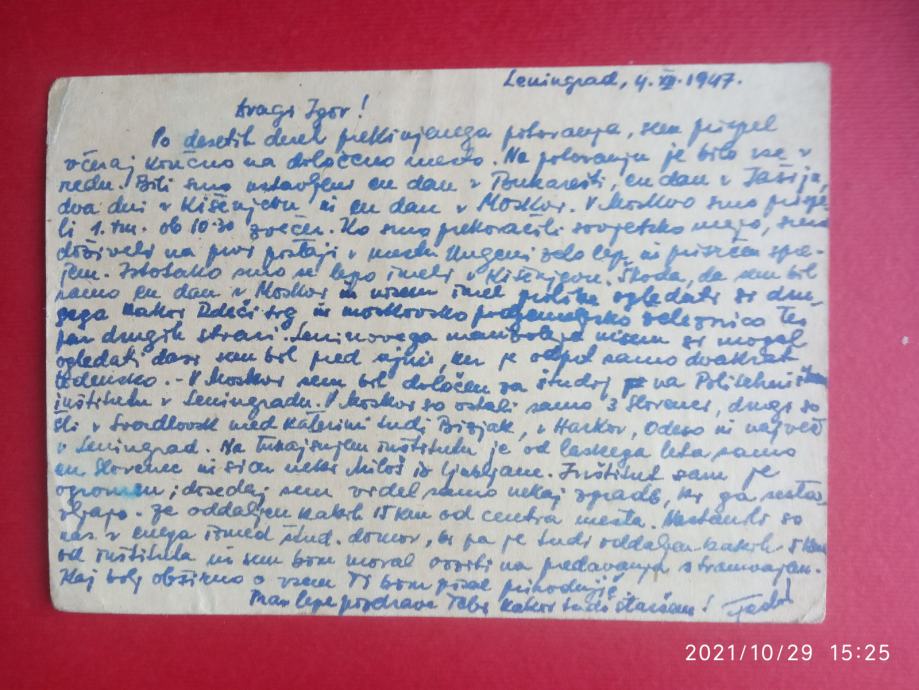 Leningrad, 4. XII. 1947.
Dragi Igor!
Po desetih dneh prekinjenega potovanja, sem prispel
včeraj končno na določeno mesto. Na potovanju je bilo vse v
redu. Bili smo ustavljeni en dan v Boukarešti, en dan v Jašiju,
dva dni v Kišenjevu in en dan v Moskvi. V Moskvo smo prispe-
li 1. tm. ob 10.30 zvečer. Ko smo prekoračili sovjetsko mejo, smo
doživeli na prvi postaji v mestu Ungeni zelo lep in prisrčen spre-
jem. Istotako smo se lepo imeli v Kišenjevu. Škoda, da sem bil
samo en dan v Moskvi in nisem imel prilike ogledati si dru-
gega kakor Rdeči trg in moskovsko podzemeljsko železnico ter
par drugih stvari. Leninovega mavzoleja nisem si mogel
ogledati dasi sem bil pred njim, ker je odprt samo dvakrat
tedensko. - V Moskvi sem bil določen za študij na Politehničnem
inštitutu v Leningradu. V Moskvi so ostali samo 3 Slovenci, drugi so
šli v Sverdlovsk med katerimi tudi Bizjak, v Harkov, Odeso in največ
v Leningrad. Na tukajšnjem inštitutu je od lanskega leta samo
en Slovenec in sicer neki Miloš iz Ljubljane. Inštitut sam je
ogromen; dosedaj sem videl samo nekaj zgradb, ki ga sesta-
vljajo. Je oddaljen kakih 15 km od centra mesta. Nastanili so
nas v enega izmed štud. domov, ki pa je tudi oddaljen kakih 5 km
od inštituta in sem bom moral voziti na predavanja s tramvajem.
Kaj bolj obširno o vsem Ti bom pisal prihodnjič.
Prav lepe pozdrave Tebi kakor tudi staršem!
2021/10/29 15:25